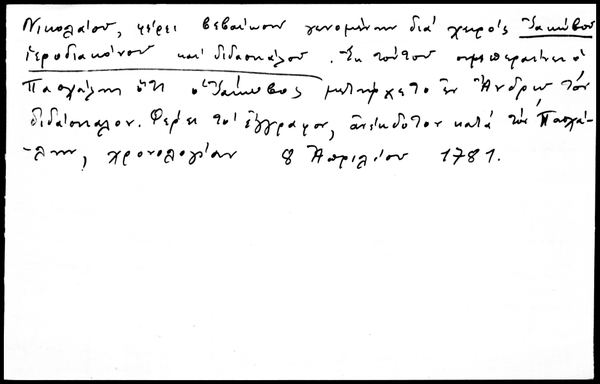 Νικολαίου, φέρει βεβαίωσιν γενομένην διά χειρός Ἰακώβου
ἱεροδιακόνου καί διδασκάλου. Ἐκ τούτου συμπεραίνει ὁ
Πασχάλης ὅτι ὁ Ἰάκωβος μετήρχετο ἐν Ἄνδρῳ τόν
διδάσκαλον. Φέρει τό ἔγγραφον, ἀνέκδοτον κατά τόν Πασχά-
-λην, χρονολογίαν 8 Ἀπριλίου 1781.